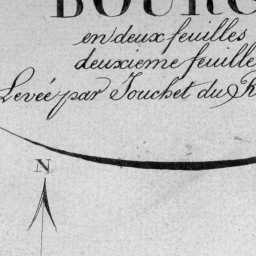 BOURG
en deux feuilles
deuxieme feuille
Levée par Jouchet du R
N